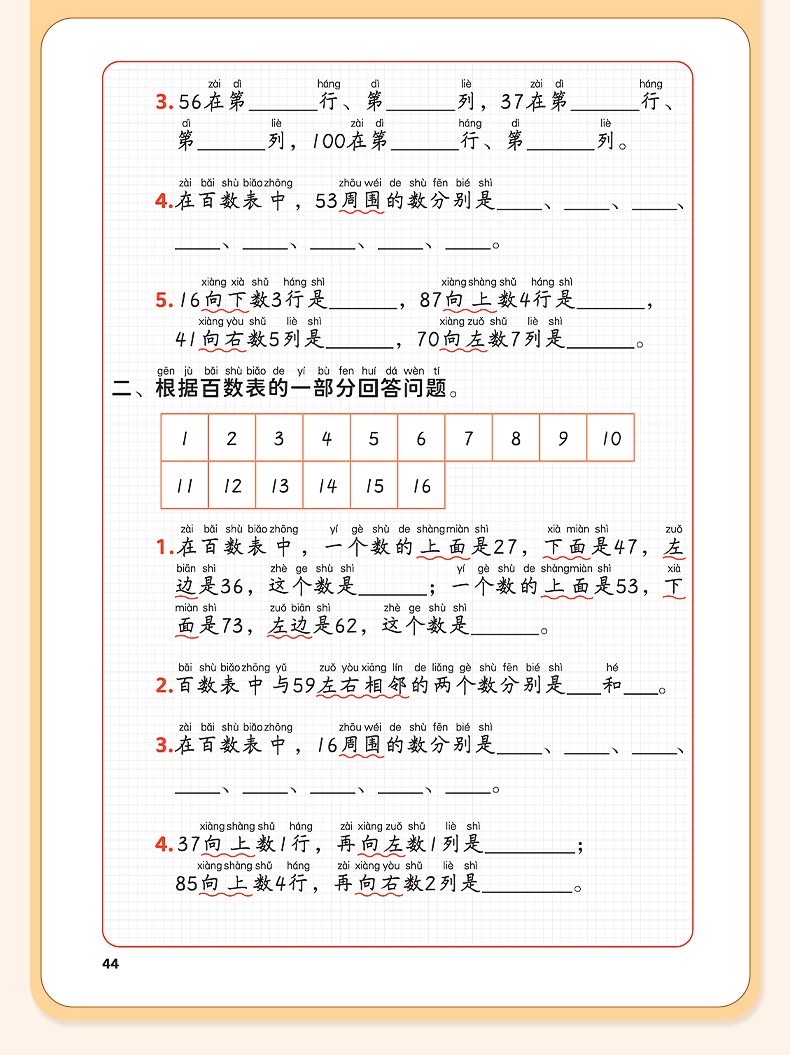 zài dì háng dì liè zài dì háng
3. 56在第______行、第______列，37在第______行、
dì liè zài dì háng dì liè
第______列，100在第______行、第______列。
zài bǎi shù biǎo zhōng zhōu wéi de shù fēn bié shì
4. 在百数表中，53周围的数分别是____、____、____、
____、____、____、____、____。
xiàng xià shǔ háng shì xiàng shàng shǔ háng shì
5. 16向下数3行是______，87向上数4行是______，
xiàng yòu shǔ liè shì xiàng zuǒ shǔ liè shì
41向右数5列是______，70向左数7列是______。
gēn jù bǎi shù biǎo de yí bù fen huí dá wèn tí
二、根据百数表的一部分回答问题。
1 2 3 4 5 6 7 8 9 10
11 12 13 14 15 16
zài bǎi shù biǎo zhōng yí gè shù de shàng miàn shì xià miàn shì zuǒ
1. 在百数表中，一个数的上面是27，下面是47，左
biān shì zhè ge shù shì yí gè shù de shàng miàn shì xià
边是36，这个数是______；一个数的上面是53，下
miàn shì zuǒ biān shì zhè ge shù shì
面是73，左边是62，这个数是______。
bǎi shù biǎo zhōng yǔ zuǒ yòu xiāng lín de liǎng gè shù fēn bié shì hé
2. 百数表中与59左右相邻的两个数分别是___和___。
zài bǎi shù biǎo zhōng zhōu wéi de shù fēn bié shì
3. 在百数表中，16周围的数分别是____、____、____、
____、____、____、____、____。
xiàng shàng shǔ háng zài xiàng zuǒ shǔ liè shì
4. 37向上数1行，再向左数1列是________；
xiàng shàng shǔ háng zài xiàng yòu shǔ liè shì
85向上数4行，再向右数2列是________。
44